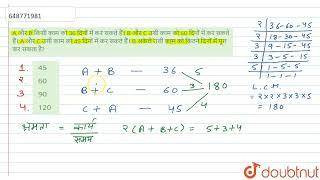 648771981
A और B किसी काम को 36 दिनों में कर सकते हैं। B और C उसी काम को 60 दिनों में कर सकते
हैं। A और C उसी काम को 45 दिनों में कर सकते हैं। B अकेले उसी काम को कितने दिनों में पूरा
कर सकता है?
1. 45
2. 60
3. 90
4. 120
A + B — 36 5
B + C — 60 3 180
C + A — 45 4
क्षमता = कार्य / समय
2 (A + B + C) = 5 + 3 + 4
2 | 36 - 60 - 45
2 | 18 - 30 - 45
3 | 9 - 15 - 45
3 | 3 - 5 - 15
5 | 1 - 5 - 5
1 - 1 - 1
L.C.M
= 2 x 2 x 3 x 3 x 5
= 180
doubtnut